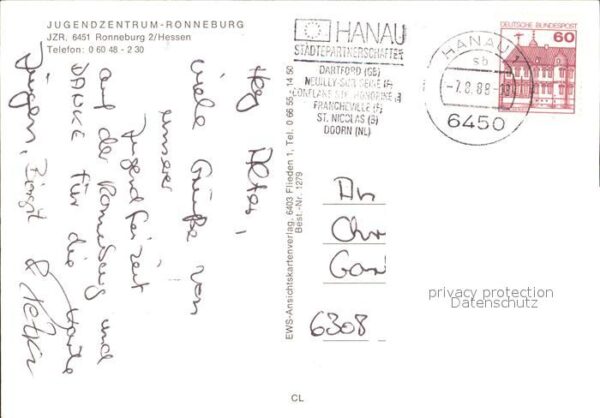 JUGENDZENTRUM-RONNEBURG
JZR, 6451 Ronneburg 2/Hessen
Telefon: 0 60 48 - 2 30
Hey Altes,
viele Grüße von
unserer
Jugendfreizeit
auf der Ronneburg und
DANKE für die Karte
Jürgen, Birgit &
EWS-Ansichtskartenverlag, 6403 Flieden 1, Tel. 0 66 55 - 14 50
Best.-Nr. 1279
HANAU
STÄDTEPARTNERSCHAFTEN
DARTFORD (GB)
NEUILLY-SUR-SEINE (F)
CONFLANS-STE-HONORINE (F)
FRANCHEVILLE (F)
ST. NICOLAS (B)
DOORN (NL)
HANAU 1
sb
-7.8.88-
6450
DEUTSCHE BUNDESPOST
60
An
Chr
Gar
6308
privacy protection
Datenschutz
CL